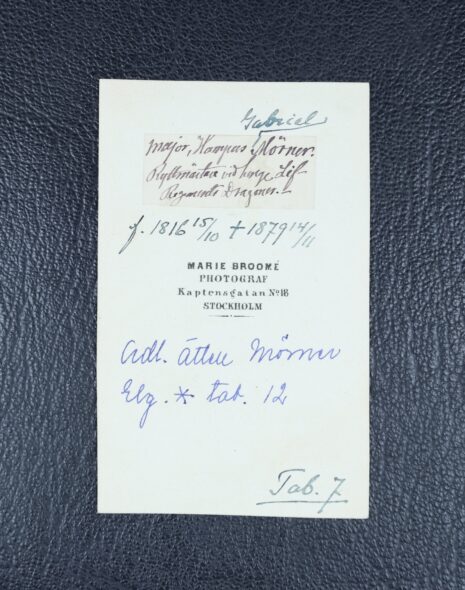 Gabriel
Major, Hampus Mörner.
Ryttmästare vid Lif-
Regementets Dragoner.
f. 1816 15/10 + 1879 14/11
MARIE BROOMÉ
PHOTOGRAF
Kaptensgatan No 16
STOCKHOLM
Adl. ätten Mörner
Elg. * tab. 12
Tab. 7